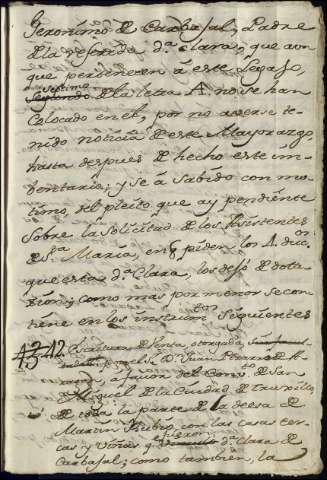 Geronimo de Carbajal, Padre
de la referida dª clara; que aun
que pertenecen á este Legajo,
septimo
Segundo de la letra A. no se han
Colocado en el, por no averse te-
nido noticia de este Mayorazgo,
hasta despues de hecho este im-
bentario; y se á Sabido con mo-
tivo, del pleito que ay pendiente
Sobre la Solicitud de los Asistentes
de Sª Maria, en q piden los A. duc.
que esta dª Clara, los dejó de dota-
cion; como mas por menor se con-
tiene en los instrum.tos Siguientes
12. Escritura de Venta, otorgada
por Juan de A-
á favor del Conv.to de San
Miguel de la Ciudad de truxillo,
de toda la parte de la deesa de
Martin Rubio, con las casas cer-
cas y viñas q dª Clara de
Carbajal; como tambien, la